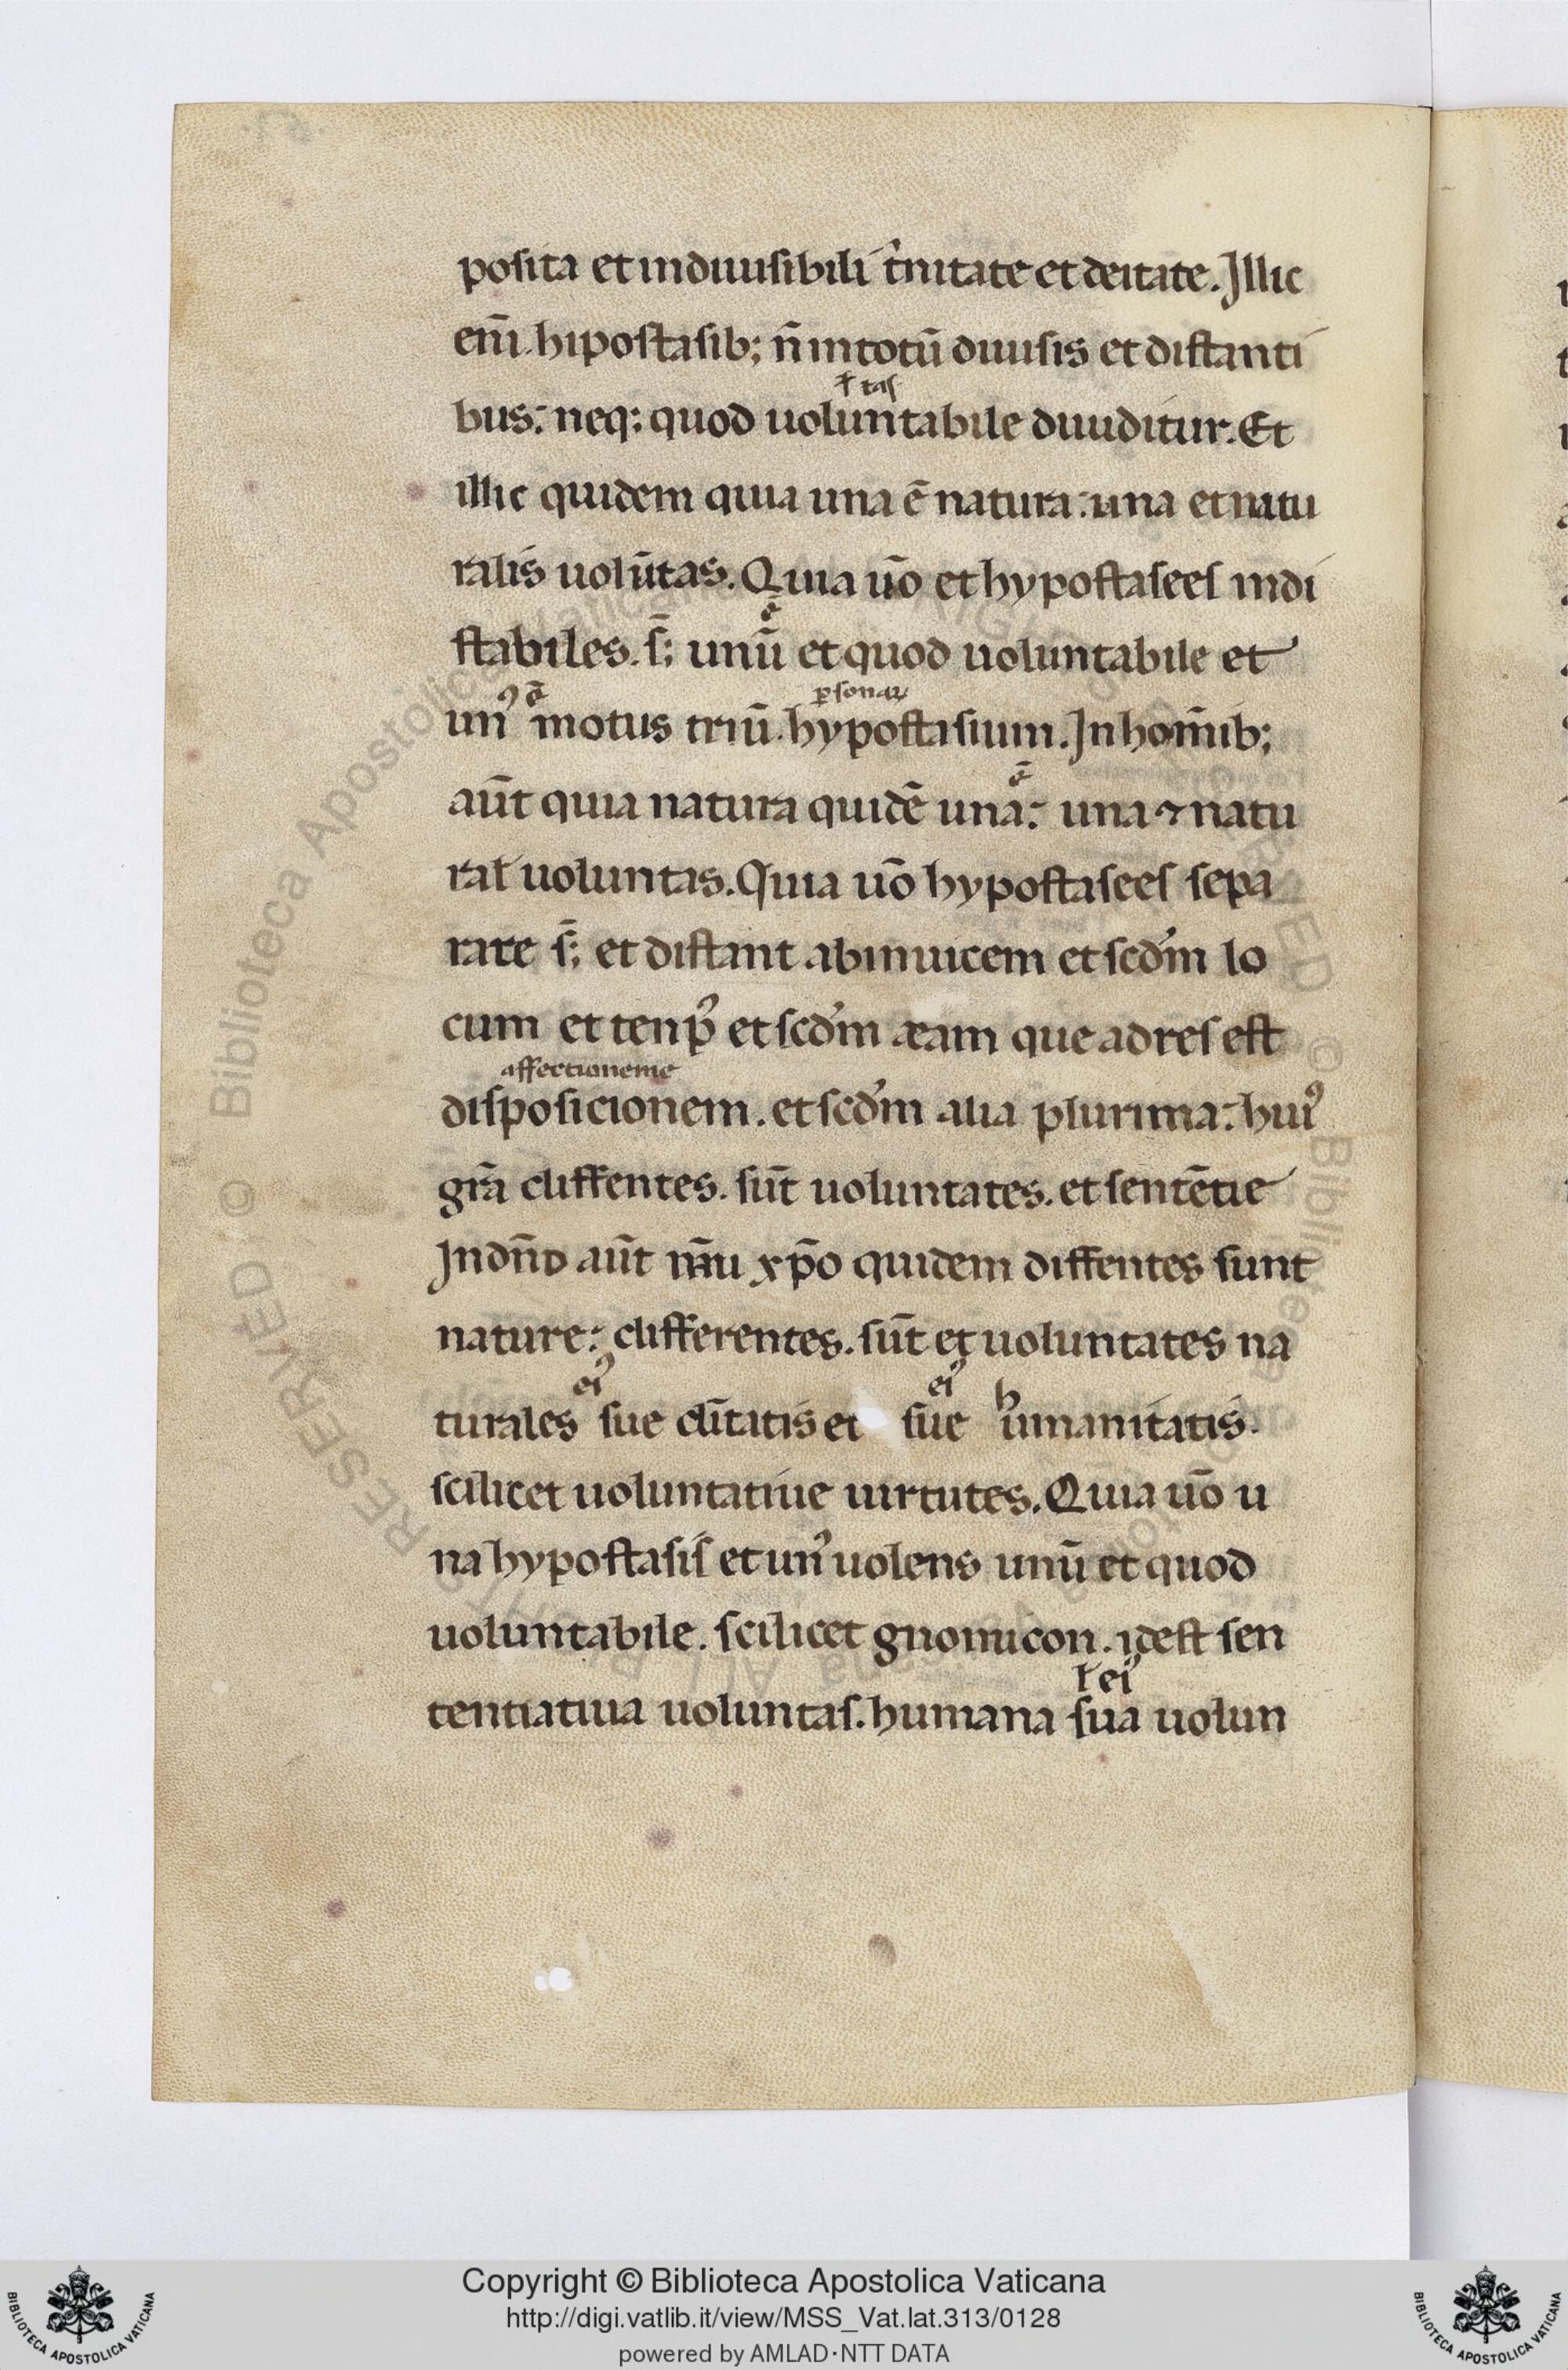 posita et indiuisibili t̉nitate et deitate. Illic
eni̅. hipostasib; n̄ in totū diuisis et distanti
ł tas
bus: neq; quod uoluntabile diuiditur. Et
illic quidem quia una ē natura: una et natu
ralis uolūtas. Quia uō et hypostasees indi
ē
stabiles. s̄; unū et quod uoluntabile et
ē p̱sonaꝝ
unꝰ motus triū. hypostasium. In hom̄ib;
ē
aūt quia natura quidē una: una ⁊ natu
ral̄ uoluntas. Quia uō hypostasees sepa
rate s̄; et distant abinuicem et scd̉m lo
cum et tenp̱ꝰ et scd̉m æam que ad res est
affectioneme
disposicionem. et scd̉m alia plurima: huiꝰ
gr̄a diffentes. sūt uoluntates. et sentētie
In dn̄o aūt nr̄̄u xp̄o quidem diffentes sunt
nature: differentes. sūt et uoluntates na
eiꝰ eiꝰ h
turales sue di̅tatis et sue umanitatis.
scilicet uoluntatiue uirtutes. Quia uō u
na hypostasis et unꝰ uolens unū et quod
uoluntabile. scilicet gnomicon. idest sen
ł eiꝰ
tentiatiua uoluntas. humana sua uolun
Copyright © Biblioteca Apostolica Vaticana
http://digi.vatlib.it/view/MSS_Vat.lat.313/0128
powered by AMLAD·NTT DATA
BIBLIOTECA APOSTOLICA VATICANA
BIBLIOTECA APOSTOLICA VATICANA